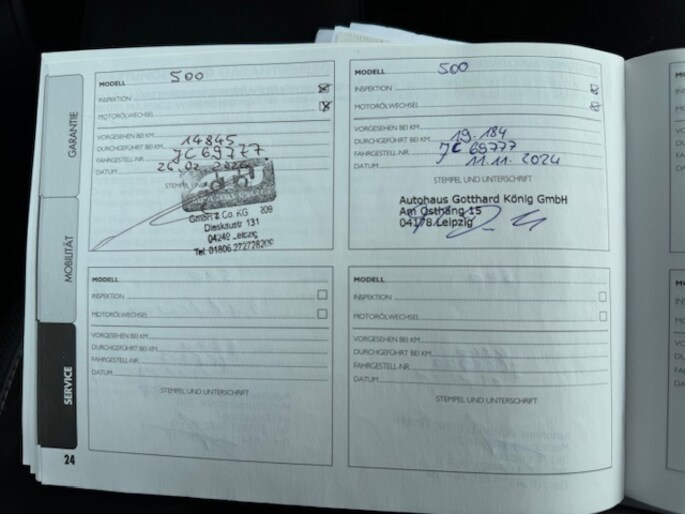 GARANTIE
MOBILITÄT
SERVICE
24
MODELL 500
INSPEKTION
MOTORÖLWECHSEL
VORGESEHEN BEI KM
DURCHGEFÜHRT BEI KM 14845
FAHRGESTELL-NR. JC69777
DATUM 26.02.
STEMPEL UND
GmbH & Co. KG 209
Dieskaustr 131
04249 Leipzig
Tel. 01806 272728209
MODELL 500
INSPEKTION
MOTORÖLWECHSEL
VORGESEHEN BEI KM
DURCHGEFÜHRT BEI KM 19.184
FAHRGESTELL-NR. JC 69777
DATUM 11.11.2024
STEMPEL UND UNTERSCHRIFT
Autohaus Gotthard König GmbH
Am Osthang 15
04178 Leipzig
MODELL
INSPEKTION
MOTORÖLWECHSEL
VORGESEHEN BEI KM
DURCHGEFÜHRT BEI KM
FAHRGESTELL-NR.
DATUM
STEMPEL UND UNTERSCHRIFT
MODELL
INSPEKTION
MOTORÖLWECHSEL
VORGESEHEN BEI KM
DURCHGEFÜHRT BEI KM
FAHRGESTELL-NR.
DATUM
STEMPEL UND UNTERSCHRIFT